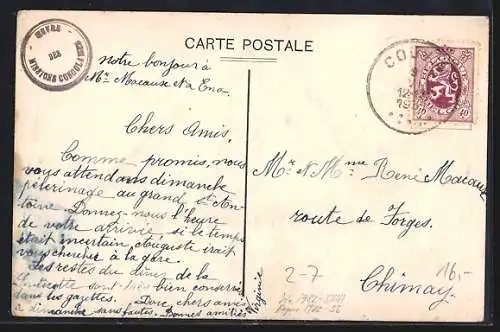 ŒUVRE
DES
MINISTÈRE CONGOLAISES
CARTE POSTALE
notre bonjour à
Mr Macaux et à Ena.
Chers Amis,
Comme promis, nous
vous attendons dimanche
pélerinage au grand St An-
toine. Donnez-nous l'heure
de votre arrivée, si le temps
était incertain, Auguste irait
vous chercher à la gare.
Les restes du dîner de la
sont très bien conservés
dans les gavettes. Donc, chers amis
à dimanche sans fautes. Bonnes amitiés
Virginie
COU
12
19
40 40
Mr & Mme René Macaux
route de Forges.
Chimay.
2-7
16,-